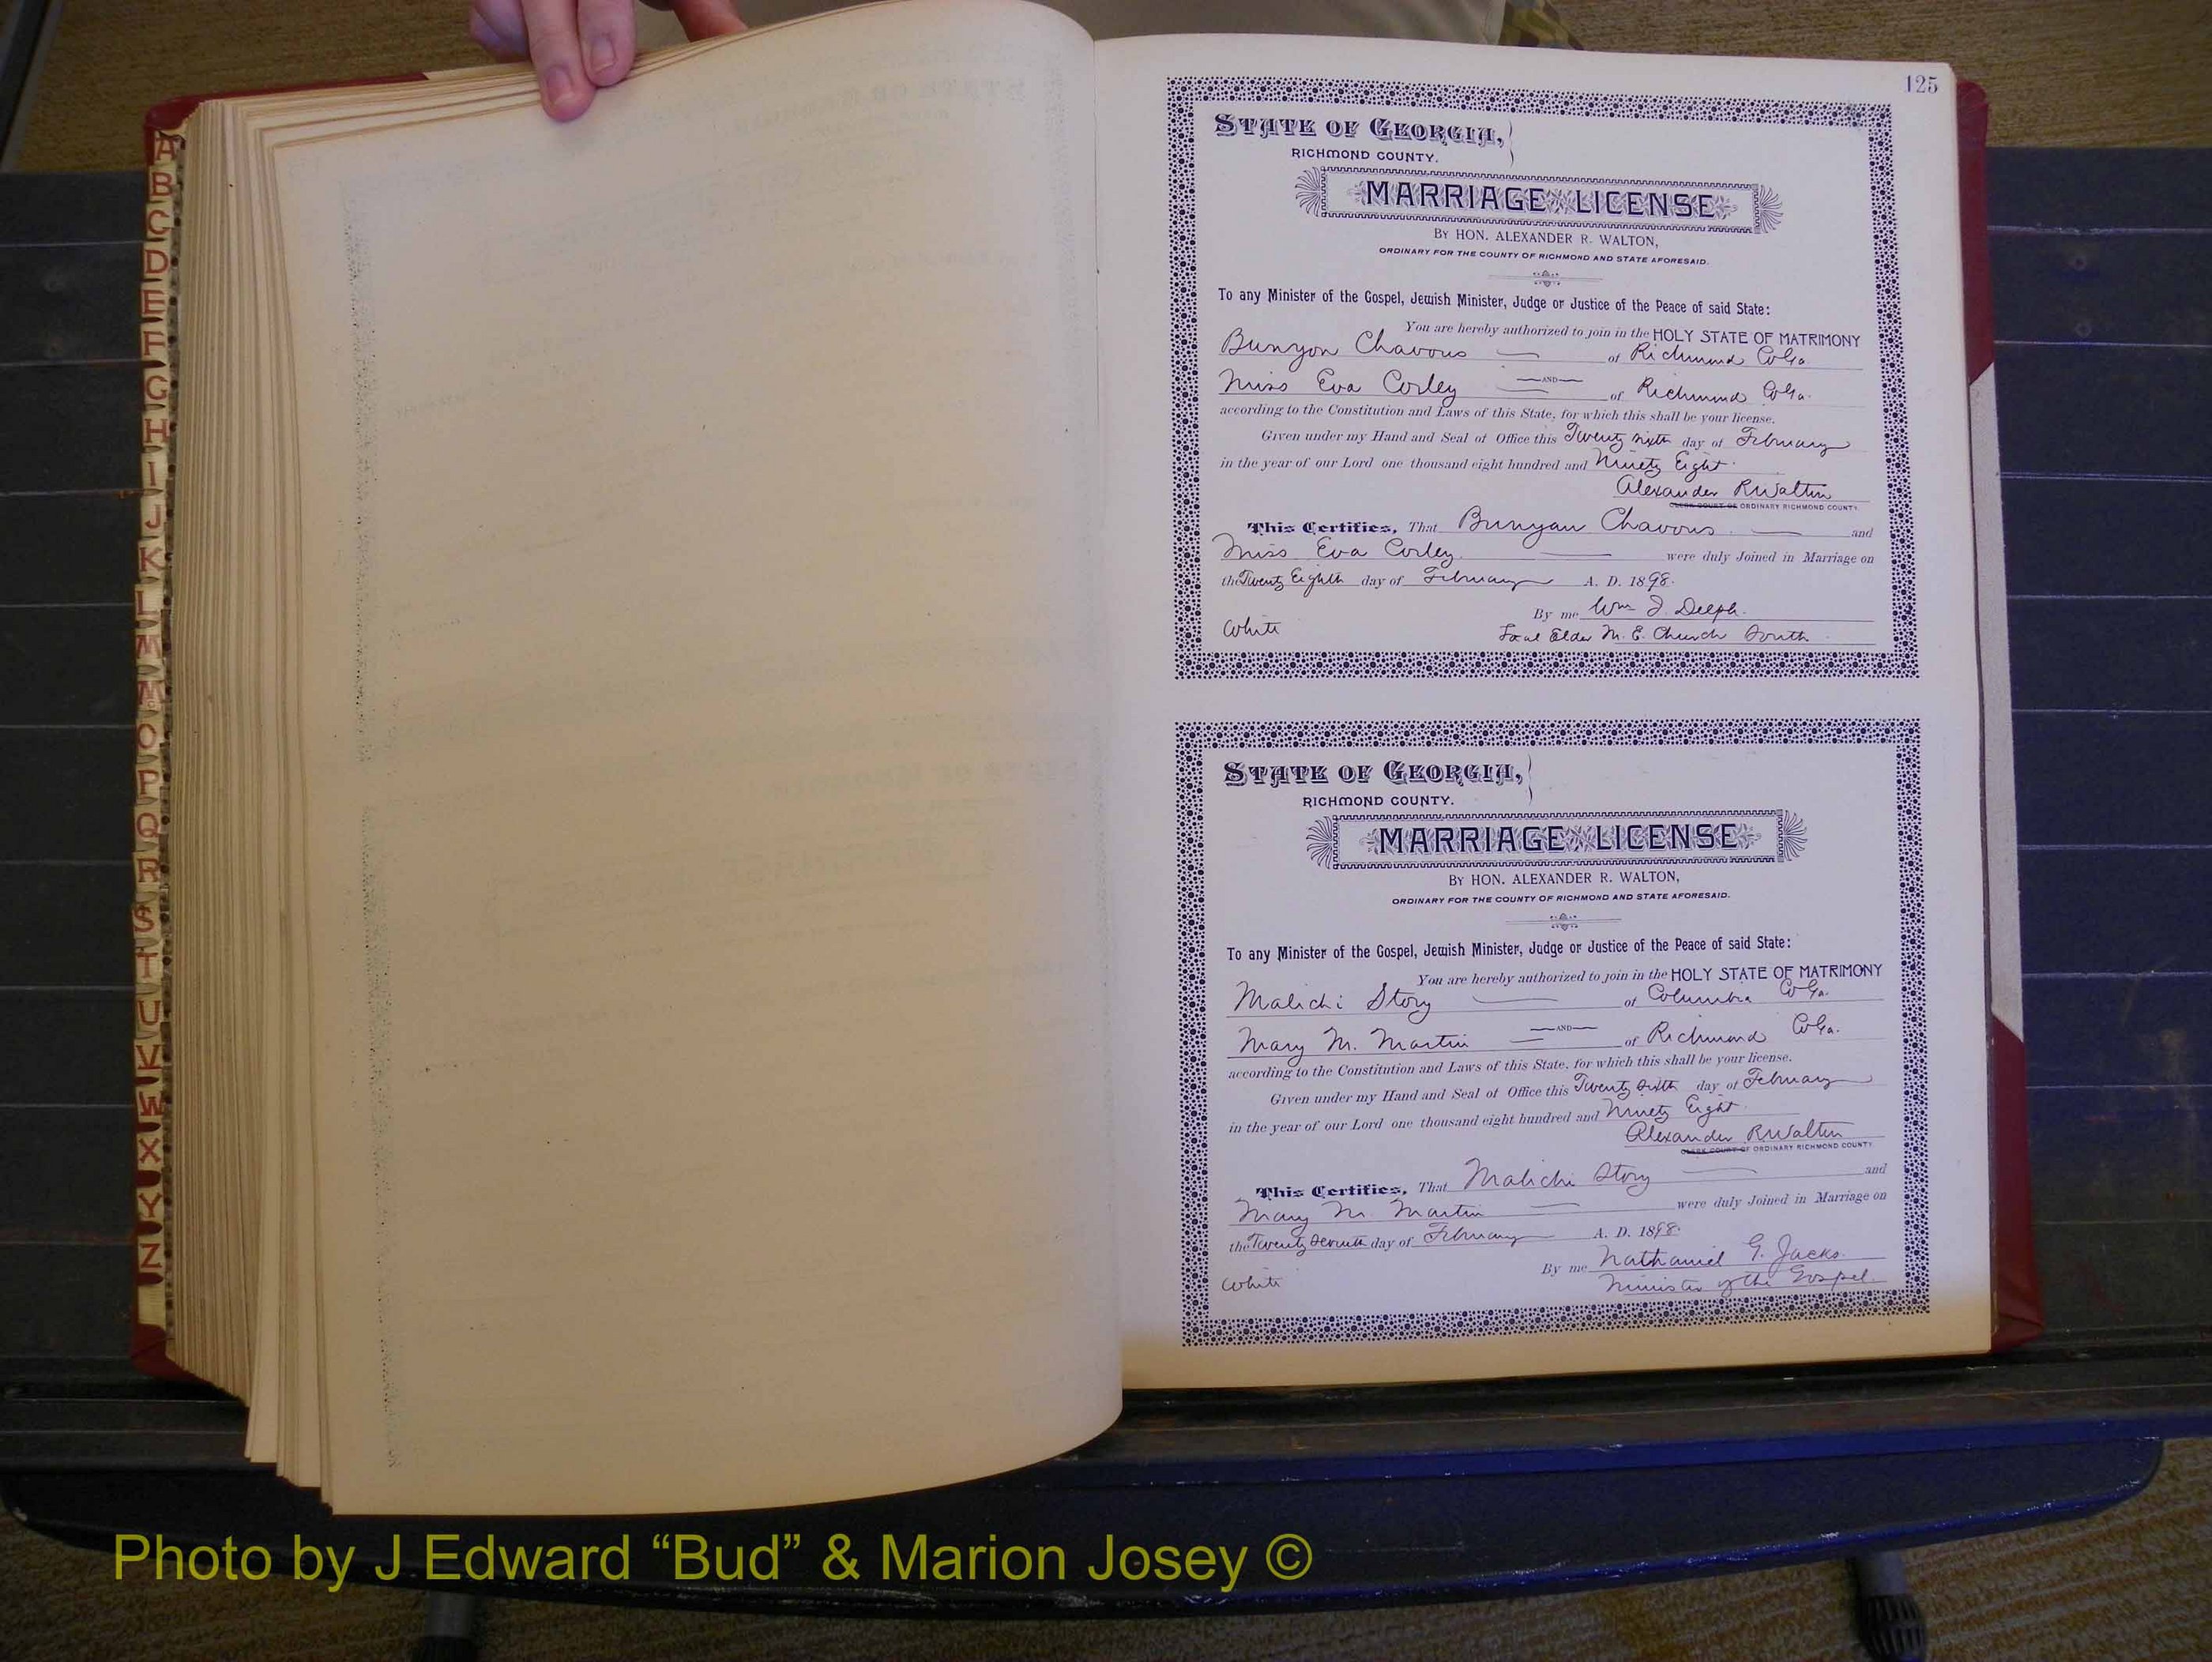 A
B
C
D
E
F
G
H
I
J
K
L
M
Mc
O
P
Q
R
S
T
U
V
W
X
Y
Z
125
STATE OF GEORGIA,
RICHMOND COUNTY.
MARRIAGE LICENSE
BY HON. ALEXANDER R. WALTON,
ORDINARY FOR THE COUNTY OF RICHMOND AND STATE AFORESAID.
To any Minister of the Gospel, Jewish Minister, Judge or Justice of the Peace of said State:
You are hereby authorized to join in the HOLY STATE OF MATRIMONY
Bunyon Chavous of Richmond Co Ga.
AND
Miss Eva Corley of Richmond Co Ga.
according to the Constitution and Laws of this State, for which this shall be your license.
Given under my Hand and Seal of Office this Twenty sixth day of February
in the year of our Lord one thousand eight hundred and Ninety Eight.
Alexander R Walton
CLERK COURT OF ORDINARY RICHMOND COUNTY
This Certifies, That Bunyan Chavous and
Miss Eva Corley. were duly Joined in Marriage on
the Twenty Eighth day of February A. D. 1898.
By me Wm J. Delph.
White Local Elder M. E. Church South
STATE OF GEORGIA,
RICHMOND COUNTY.
MARRIAGE LICENSE
BY HON. ALEXANDER R. WALTON,
ORDINARY FOR THE COUNTY OF RICHMOND AND STATE AFORESAID.
To any Minister of the Gospel, Jewish Minister, Judge or Justice of the Peace of said State:
You are hereby authorized to join in the HOLY STATE OF MATRIMONY
Malichi Story of Columbia Co Ga.
AND
Mary M. Martin of Richmond Co Ga.
according to the Constitution and Laws of this State, for which this shall be your license.
Given under my Hand and Seal of Office this Twenty Sixth day of February
in the year of our Lord one thousand eight hundred and Ninety Eight.
Alexander R Walton
CLERK COURT OF ORDINARY RICHMOND COUNTY
This Certifies, That Malichi Story and
Mary M. Martin were duly Joined in Marriage on
the Twenty Seventh day of February A. D. 1898.
By me Nathaniel G. Jacks.
White Minister of the Gospel.
Photo by J Edward “Bud” & Marion Josey ©